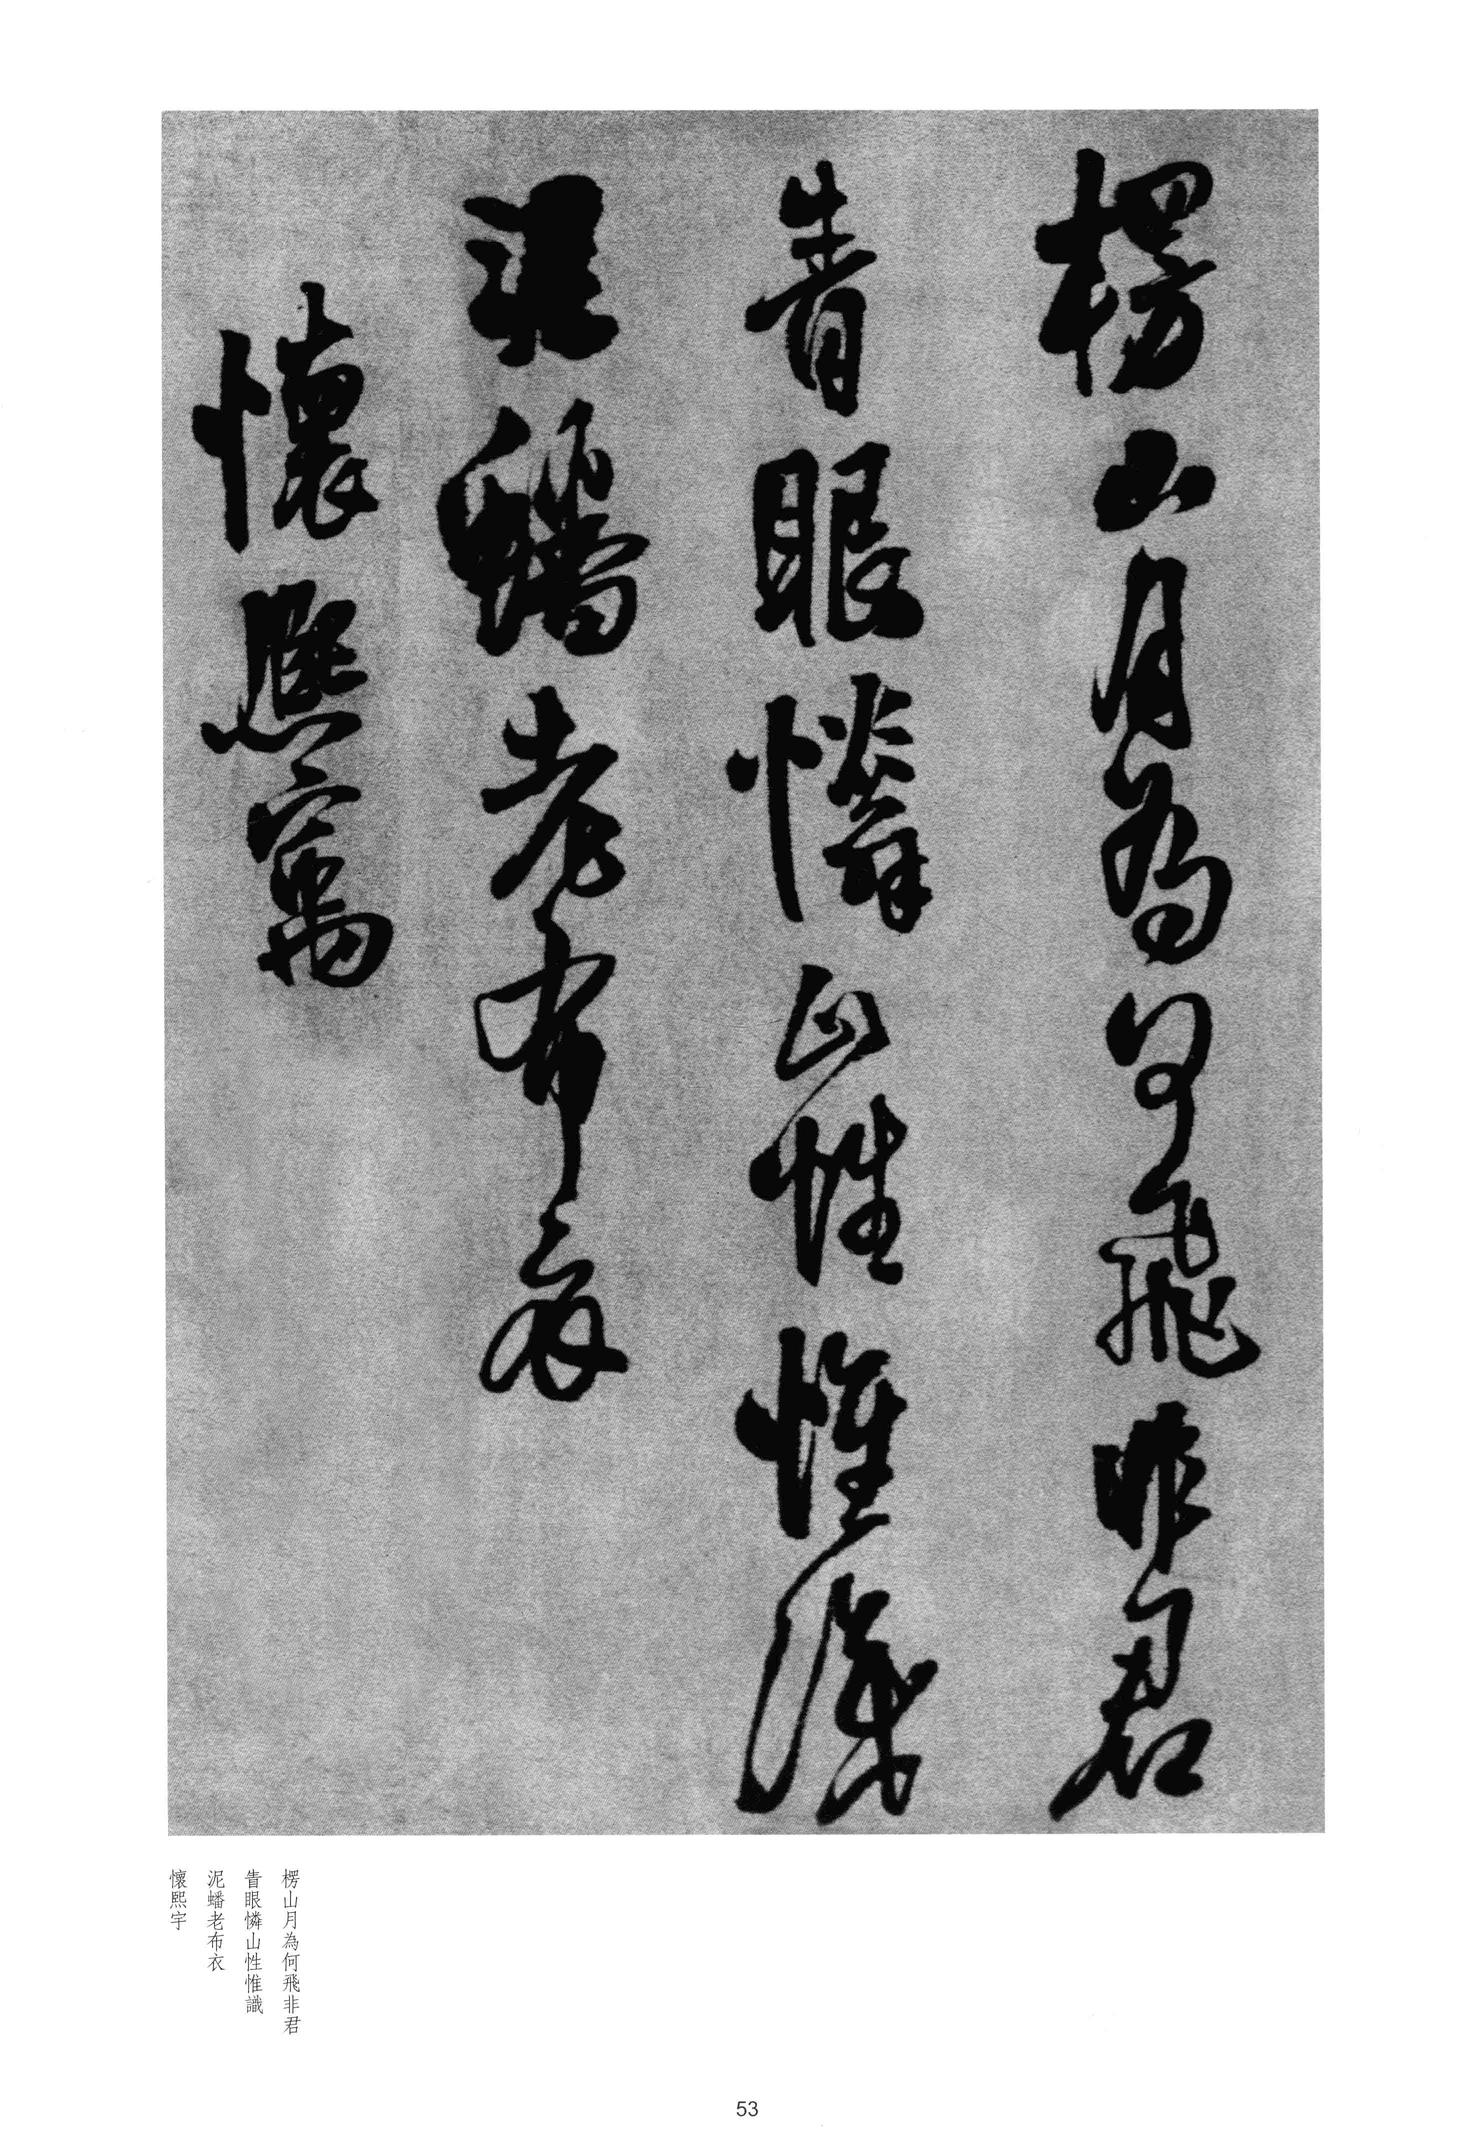 楞山月為何飛非君
青眼憐山性惟識
泥蟠老布衣
懷熙寓
楞山月為何飛非君
眚眼憐山性惟識
泥蟠老布衣
懷熙宇
53